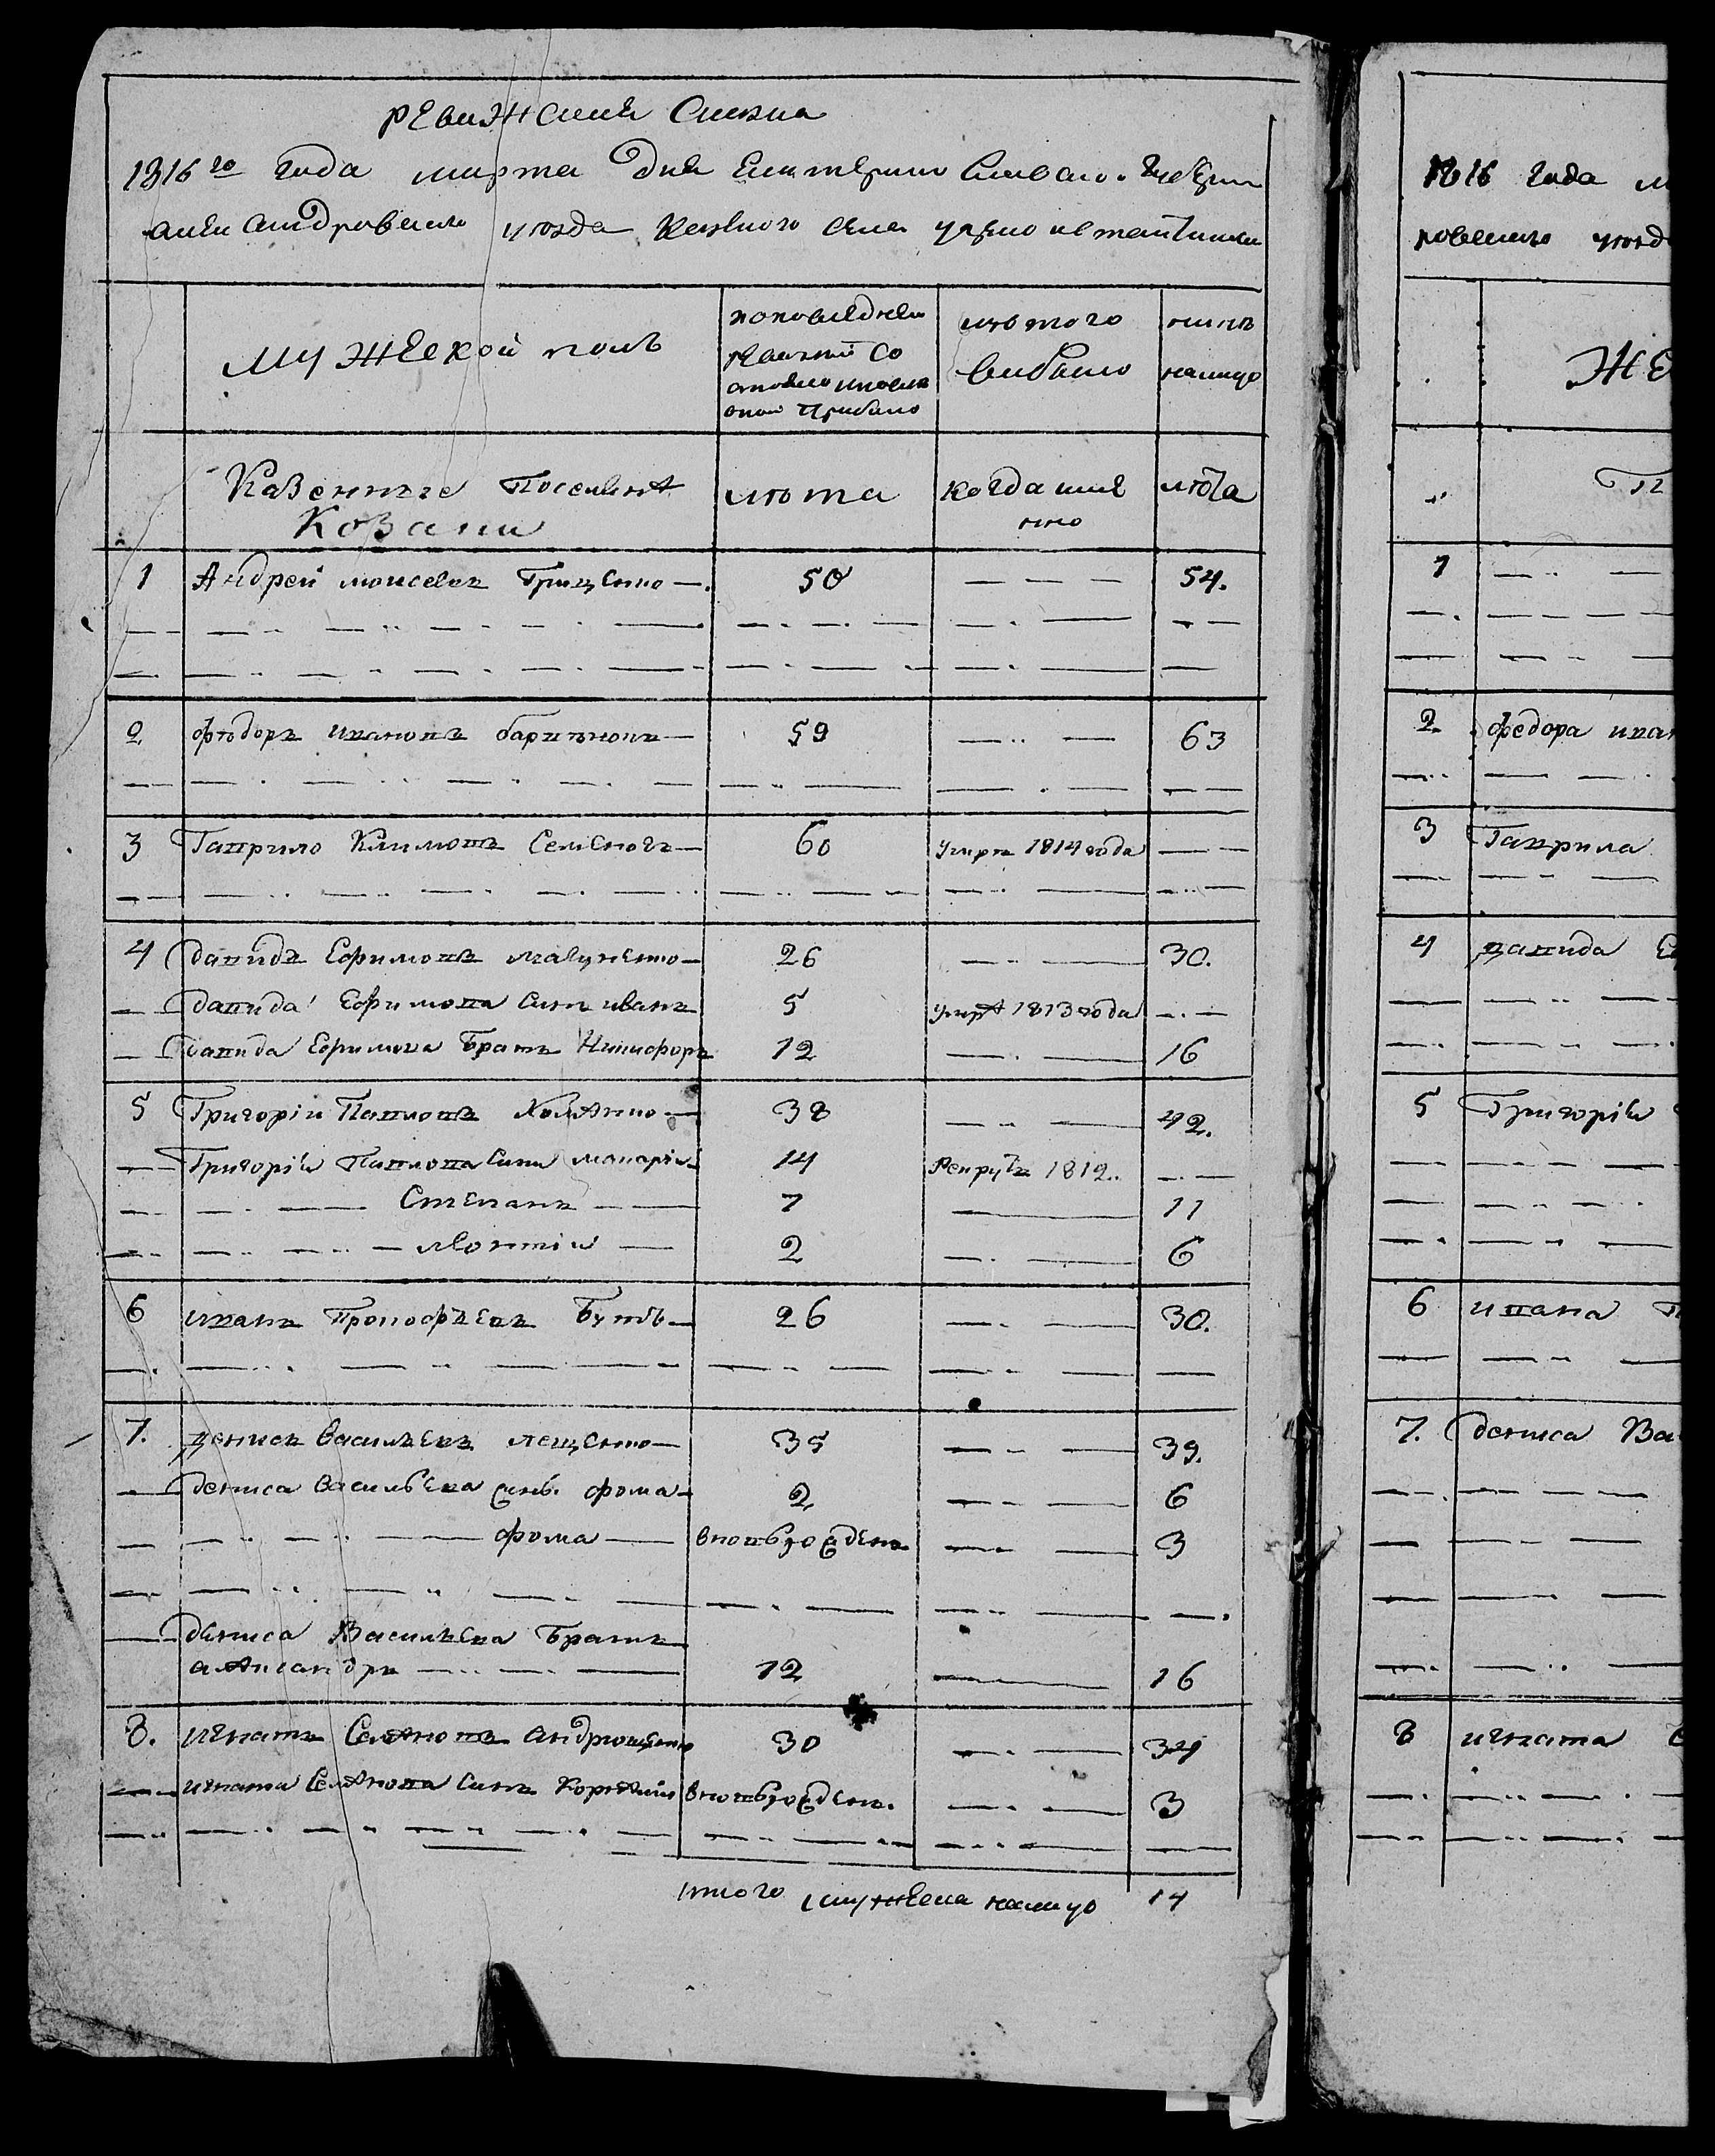 ревижская скаска
1816го года марта дня Екатеринославской губернии
александровского уезда казенного села
мужеской полъ
попоследней ревизии состояло и после оной прибыло
изъ того выбыло
нынѣ налицо
Казенные Поселяне
Козаки
лѣта
когда имянно
лѣта
1 Андрей моисеевъ Грищенко 50 54.
2 фѣодоръ ивановъ 59 63
3 Гаврило Климовъ Семеновъ 60 умеръ 1814 года
4 давидъ Ефимовъ 26 30.
давида Ефимова Синъ иванъ 5 умре 1813 года
давида Ефимова Братъ Никифоръ 12 16
5 Григорій Павловъ 38 42.
Григорія Павлова Сини макарій 14 Рекрутъ 1812..
Степанъ 7 11
леонтій 2 6
6 иванъ Прокофьевъ Бутъ 26 30.
7. денисъ Васильевъ лещенко 35 39.
дениса Васильева синъ фома 2 6
фома вновьрожденъ 3
дениса Васильева Братъ
александръ 12 16
8. игнатъ Семеновъ андрющенко 30 34
игната Семенова Синъ Корнилий вновьрожденъ. 3
итого мужеска налицо 14
1816 года м
ровского уезд
ЖЕ
1
2. федора иван
3 Гаврила
4 давида Е
5 Григорія
6 ивана П
7. дениса Ва
8 игната С